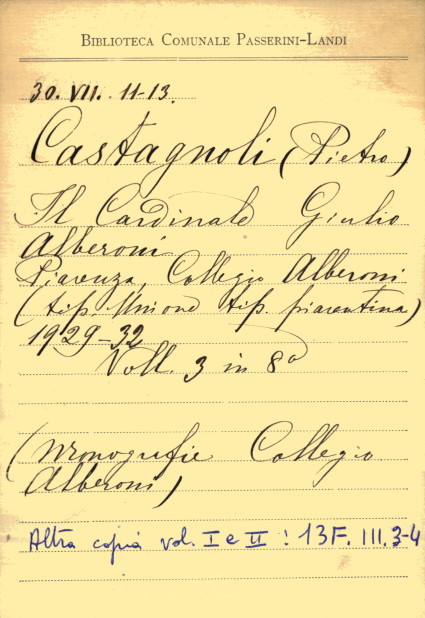 BIBLIOTECA COMUNALE PASSERINI-LANDI
30. VII. 11-13.
Castagnoli (Pietro)
Il Cardinale Giulio
Alberoni
Piacenza, Collegio Alberoni
(tip. Unione tip. piacentina)
1929-32
Voll. 3 in 8º
(Monografie Collegio
Alberoni)
Altra copia vol. I e II : 13F. III. 3-4